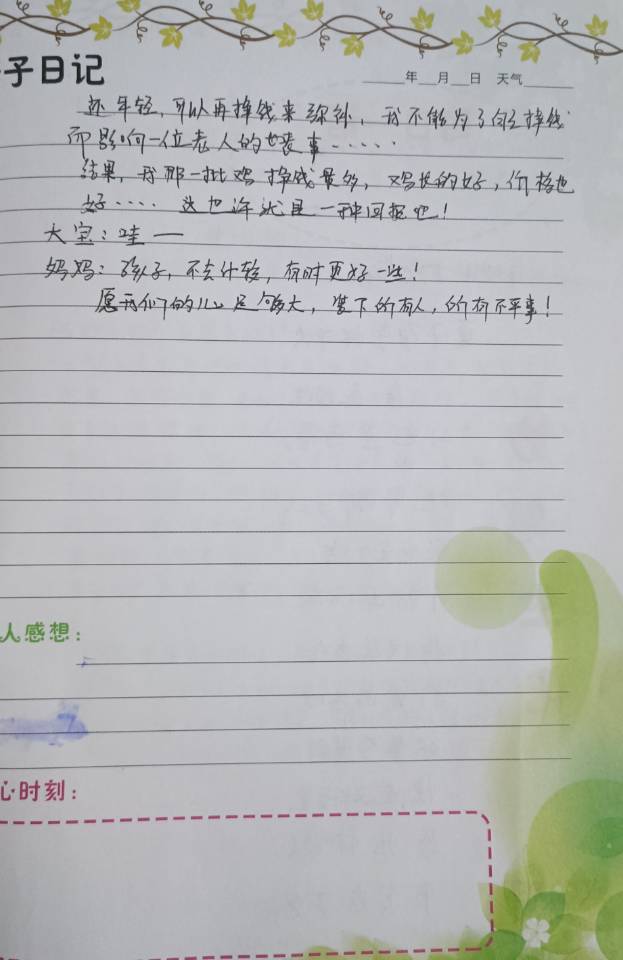 子日记
年 月 日 天气
还年轻，可以再挣钱来弥补，我不能为了自己挣钱
而影响一位老人的丧事······
结果，我那一批鸡挣钱最多，鸡长的好，价格也
好····这也许就是一种回报吧！
大宝：哇——
妈妈：孩子，不去计较，有时更好一些！
愿我们的心足够大，装下所有人，所有不平事！
人感想：
心时刻：